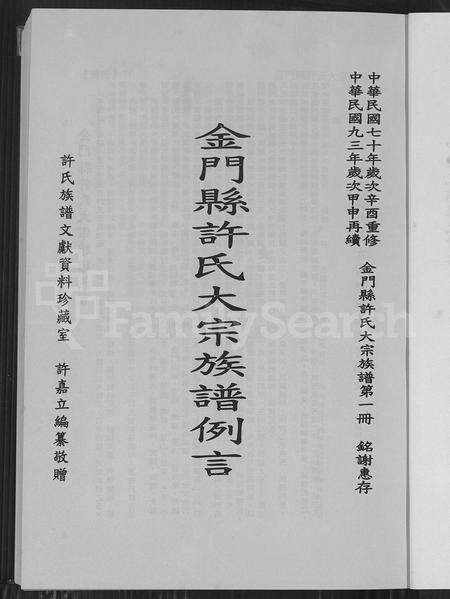 中華民國七十年歲次辛酉重修
中華民國九三年歲次甲申再續
金門縣許氏大宗族譜第一冊 銘謝惠存
金門縣許氏大宗族譜例言
許氏族譜文獻資料珍藏室 許嘉立編纂敬贈
FamilySearch